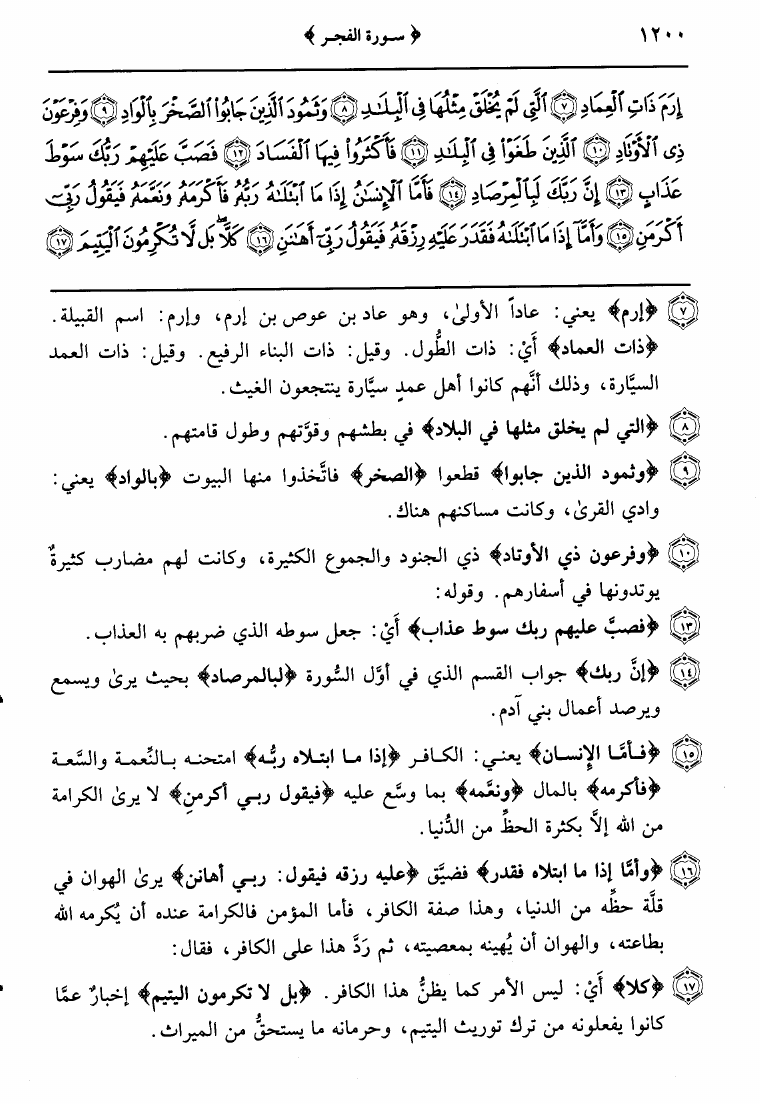 ١٢٠٠ ﴿ سورة الفجر ﴾
إِرَمَ ذَاتِ ٱلْعِمَادِ ⑦ ٱلَّتِى لَمْ يُخْلَقْ مِثْلُهَا فِى ٱلْبِلَٰدِ ⑧ وَثَمُودَ ٱلَّذِينَ جَابُوا۟ ٱلصَّخْرَ بِٱلْوَادِ ⑨ وَفِرْعَوْنَ
ذِى ٱلْأَوْتَادِ ⑩ ٱلَّذِينَ طَغَوْا۟ فِى ٱلْبِلَٰدِ ⑪ فَأَكْثَرُوا۟ فِيهَا ٱلْفَسَادَ ⑫ فَصَبَّ عَلَيْهِمْ رَبُّكَ سَوْطَ
عَذَابٍ ⑬ إِنَّ رَبَّكَ لَبِٱلْمِرْصَادِ ⑭ فَأَمَّا ٱلْإِنسَٰنُ إِذَا مَا ٱبْتَلَىٰهُ رَبُّهُۥ فَأَكْرَمَهُۥ وَنَعَّمَهُۥ فَيَقُولُ رَبِّىٓ
أَكْرَمَنِ ⑮ وَأَمَّآ إِذَا مَا ٱبْتَلَىٰهُ فَقَدَرَ عَلَيْهِ رِزْقَهُۥ فَيَقُولُ رَبِّىٓ أَهَٰنَنِ ⑯ كَلَّا ۖ بَل لَّا تُكْرِمُونَ ٱلْيَتِيمَ ⑰
⑦ ﴿إرم﴾ يعني: عاداً الأولىٰ، وهو عاد بن عوص بن إرم، وإرم: اسم القبيلة.
﴿ذات العماد﴾ أَيْ: ذات الطُّول. وقيل: ذات البناء الرفيع. وقيل: ذات العمد
السيَّارة، وذلك أنَّهم كانوا أهل عمدٍ سيَّارة ينتجعون الغيث.
⑧ ﴿التي لم يخلق مثلها في البلاد﴾ في بطشهم وقوَّتهم وطول قامتهم.
⑨ ﴿وثمود الذين جابوا﴾ قطعوا ﴿الصخر﴾ فاتَّخذوا منها البيوت ﴿بالواد﴾ يعني:
وادي القرىٰ، وكانت مساكنهم هناك.
⑩ ﴿وفرعون ذي الأوتاد﴾ ذي الجنود والجموع الكثيرة، وكانت لهم مضارب كثيرةٌ
يوتدونها في أسفارهم. وقوله:
⑬ ﴿فصبَّ عليهم ربك سوط عذاب﴾ أَيْ: جعل سوطه الذي ضربهم به العذاب.
⑭ ﴿إنَّ ربك﴾ جواب القسم الذي في أوَّل السُّورة ﴿لبالمرصاد﴾ بحيث يرىٰ ويسمع
ويرصد أعمال بني آدم.
⑮ ﴿فأمَّا الإنسان﴾ يعني: الكافر ﴿إذا ما ابتلاه ربُّه﴾ امتحنه بالنِّعمة والسَّعة
﴿فأكرمه﴾ بالمال ﴿ونعَّمه﴾ بما وسَّع عليه ﴿فيقول ربي أكرمنِ﴾ لا يرىٰ الكرامة
من الله إلَّا بكثرة الحظِّ من الدُّنيا.
⑯ ﴿وأمَّا إذا ما ابتلاه فقدر﴾ فضيَّق ﴿عليه رزقه فيقول: ربي أهانن﴾ يرىٰ الهوان في
قلَّة حظِّه من الدنيا، وهذا صفة الكافر، فأما المؤمن فالكرامة عنده أن يُكرمه الله
بطاعته، والهوان أن يُهينه بمعصيته، ثم رَدَّ هذا على الكافر، فقال:
⑰ ﴿كلا﴾ أَيْ: ليس الأمر كما يظنُّ هذا الكافر. ﴿بل لا تكرمون اليتيم﴾ إخبارٌ عمَّا
كانوا يفعلونه من ترك توريث اليتيم، وحرمانه ما يستحقُّ من الميراث.